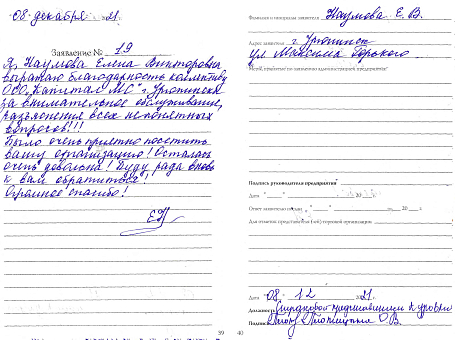 08 декабря 21.
Заявление № 19
Я, Наумова Елена Викторовна
выражаю благодарность коллективу
ООО "Капитал МС" г Урюпинска
за внимательное обслуживание,
разъяснения всех непонятных
вопросов!!!
Было очень приятно посетить
вашу организацию! Осталась
очень довольна! Буду рада вновь
к вам обратиться!
Огромное спасибо!
39
Фамилия и инициалы заявителя Наумова Е. В.
Адрес заявителя г. Урюпинск
ул Максима Горького
Меры, принятые по заявлению администрацией предприятия
Подпись руководителя предприятия
Дата 20
Ответ заявителю послан 20 г.
Для отметки представителя (лей) торговой организации
Дата 08. 12 2021.
Должность Страховой представитель I уровня
Подпись О. В.
40